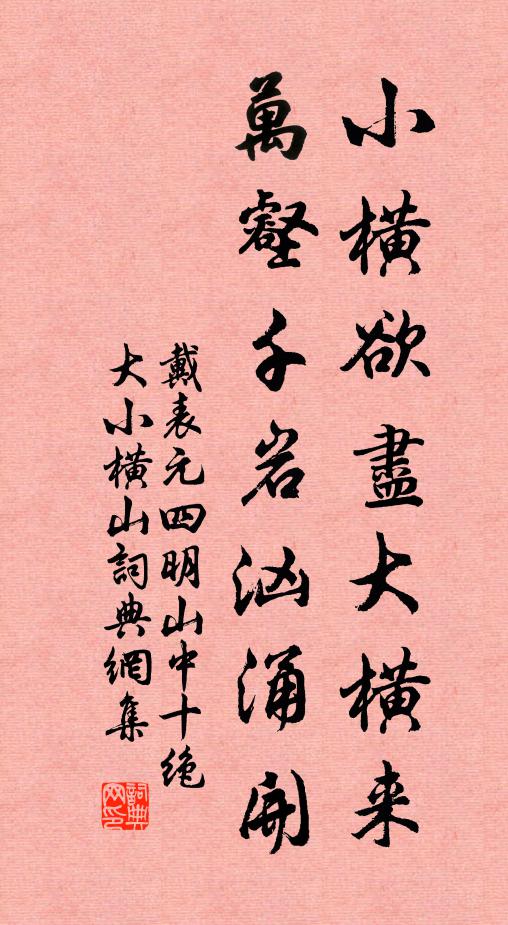 小橫欲盡大橫来
萬壑千岩汹涌開
戴表元四明山中十绝
大小橫山詞典網集
詞典网印